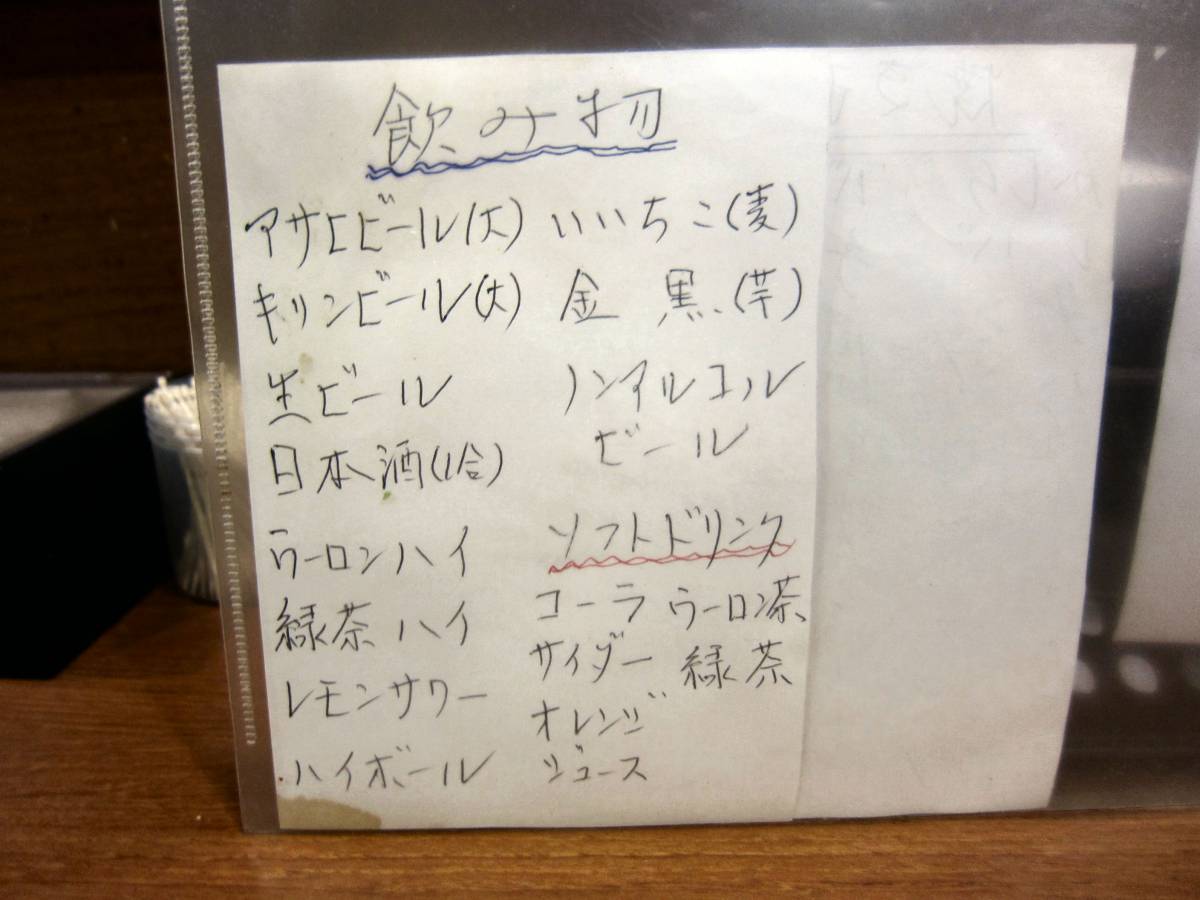 飲み物
アサヒビール(大)
キリンビール(大)
生ビール
日本酒(1合)
ウーロンハイ
緑茶ハイ
レモンサワー
ハイボール
いいちこ(麦)
金 黒(芋)
ノンアルコール
ビール
ソフトドリンク
コーラ ウーロン茶
サイダー 緑茶
オレンジ
ジュース